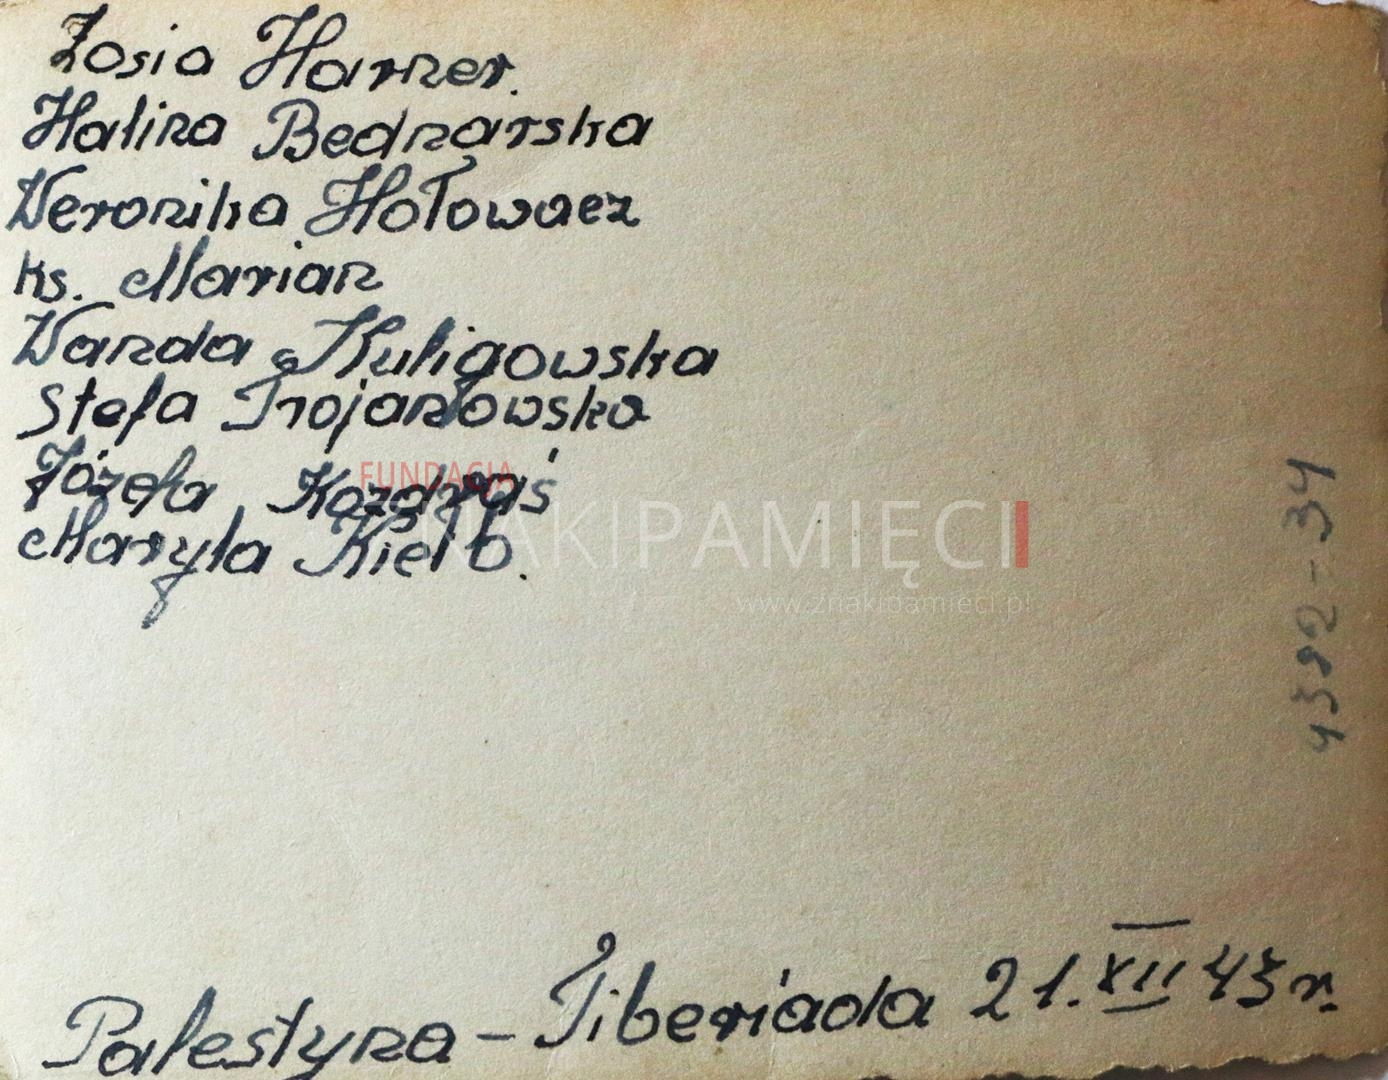 Zosia Harner.
Halina Bednarska
Weronika Hołowacz
ks. Marian
Wanda Kuligowska
Stefa Trojanowska
Józefa Kozdraś
Maryla Kiełb.
FUNDACJA
ZNAKI PAMIĘCI
www.znakipamieci.pl
4392-34
Palestyna - Tiberiada 21.XII 43 r.